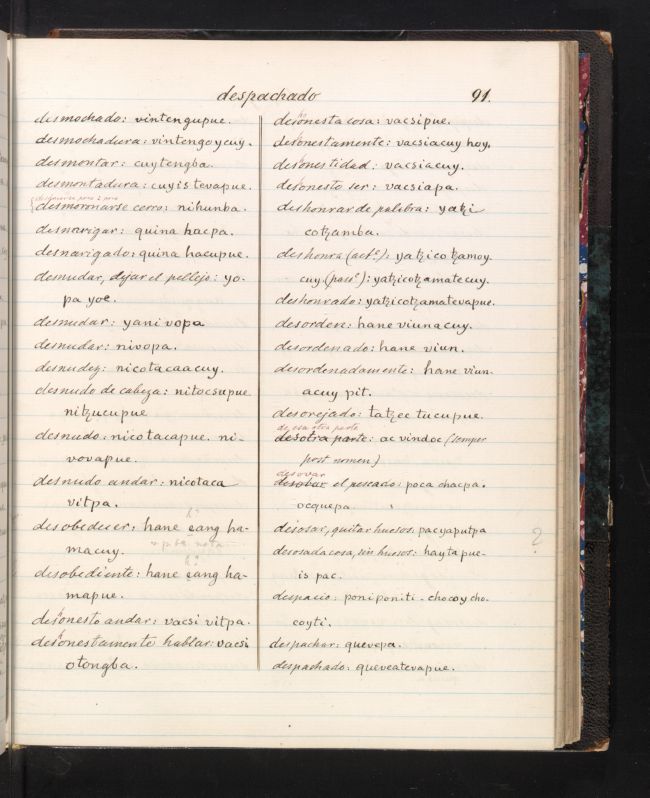 despachado
91.
desmochado: vintengupue.
desmochadura: vintengoycuy.
desmontar: cuytengba.
desmontadura: cuyis tevapue.
desmoronarse cerro: nihunba.
desnarigar: quina hacpa.
desnarigado: quina hacupue.
desnudar, dejar el pellejo: yo-
pa yoe.
desnudar: yanivopa
desnudar: nivopa.
desnudez: nicotacaacuy.
desnudo de cabeza: nitocsupue
nitzucupue
desnudo: nicotacapue. ni-
vovapue.
desnudo andar: nicotaca
vitpa.
desobedecer: hane eang ha-
macuy.
desobediente: hane eang ha-
mapue.
desonesto andar: vacsi vitpa.
desonestamente hablar: vacsi
otongba.
desonesta cosa: vacsipue.
desonestamente: vacsiacuy hoy.
desonestidad: vacsiacuy.
desonesto ser: vacsiapa.
deshonrar de palabra: yatzi
cotzamba.
deshonra (act.ᵉ): yatzicotzamoy
cuy (pas.ᵉ): yatzicotzamatecuy.
deshonrado: yatzicotzamatevapue.
desorden: hane viunacuy.
desordenado: hane viun.
desordenadamente: hane viun.
acuy pit.
desorejado: tatzec tucupue.
de esa otra parte
desotra parte: ac vindoc (semper
post nomen)
desovar
desobar el pescado: poca chacpa.
ocquepa.
desosar, quitar huesos: pacyaputpa
desosada cosa, sin huesos: hayta pue-
is pac.
?
despacio: poniponiti. chocoycho.
coyti.
despachar: quevepa.
despachado: queveatevapue.